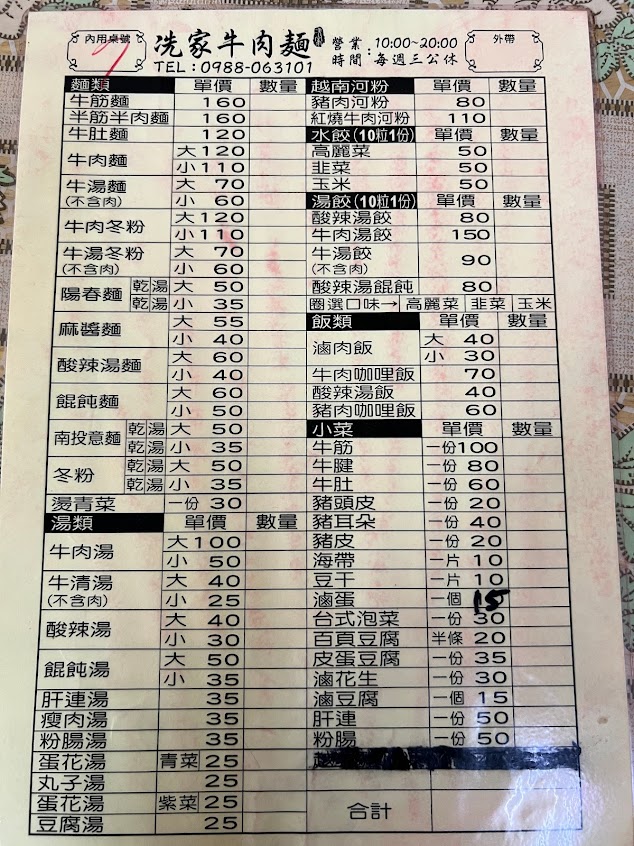 內用桌號
冼家牛肉麵
營業時間：10:00~20:00 每週三公休
外帶
TEL：0988-063101
麵類 單價 數量
牛筋麵 160
半筋半肉麵 160
牛肚麵 120
牛肉麵 大 120
小 110
牛湯麵 大 70
(不含肉) 小 60
牛肉冬粉 大 120
小 110
牛湯冬粉 大 70
(不含肉) 小 60
陽春麵 乾 湯 大 50
乾 湯 小 35
麻醬麵 大 55
小 40
酸辣湯麵 大 60
小 40
餛飩麵 大 60
小 50
南投意麵 乾 湯 大 50
乾 湯 小 35
冬粉 乾 湯 大 50
乾 湯 小 35
燙青菜 一份 30
湯類 單價 數量
牛肉湯 大 100
小 50
牛清湯 大 40
(不含肉) 小 25
酸辣湯 大 40
小 30
餛飩湯 大 50
小 35
肝連湯 35
瘦肉湯 35
粉腸湯 35
蛋花湯 青菜 25
丸子湯 25
蛋花湯 紫菜 25
豆腐湯 25
越南河粉 單價 數量
豬肉河粉 80
紅燒牛肉河粉 110
水餃(10粒1份) 單價 數量
高麗菜 50
韭菜 50
玉米 50
湯餃(10粒1份) 單價 數量
酸辣湯餃 80
牛肉湯餃 150
牛湯餃 90
(不含肉)
酸辣湯餛飩 80
圈選口味→ 高麗菜 韭菜 玉米
飯類 單價 數量
滷肉飯 大 40
小 30
牛肉咖哩飯 70
酸辣湯飯 40
豬肉咖哩飯 60
小菜 單價 數量
牛筋 一份 100
牛腱 一份 80
牛肚 一份 60
豬頭皮 一份 20
豬耳朵 一份 40
豬皮 一份 20
海帶 一片 10
豆干 一片 10
滷蛋 一個 15
台式泡菜 一份 30
百頁豆腐 半條 20
皮蛋豆腐 一份 35
滷花生 一份 30
滷豆腐 一個 15
肝連 一份 50
粉腸 一份 50
合計